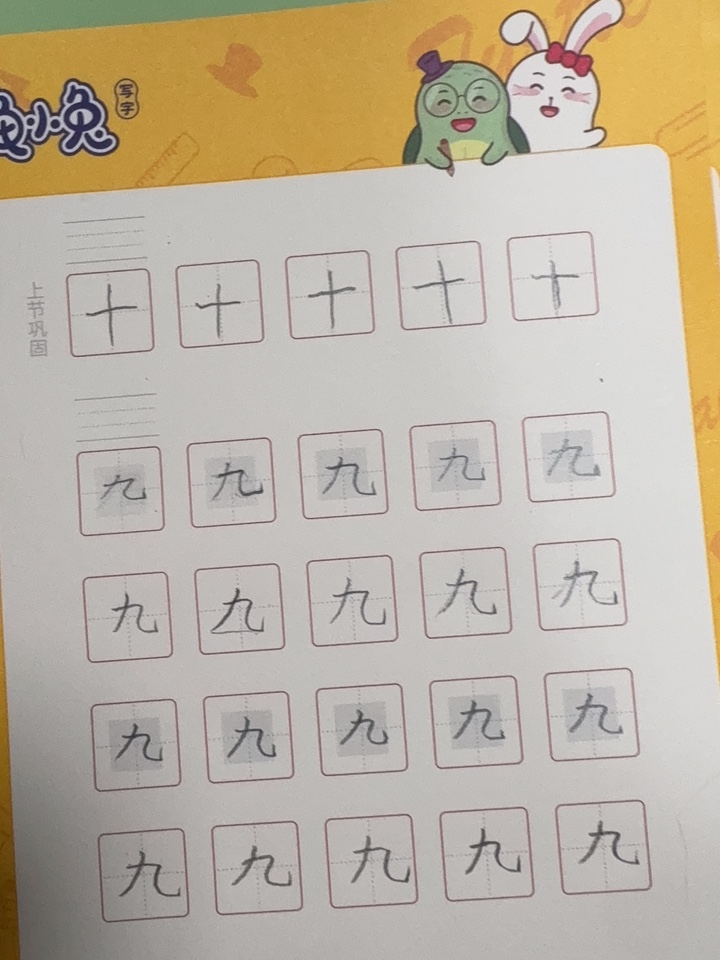 小兔
写字
上节巩固
十 十 十 十 十
九 九 九 九 九
九 九 九 九 九
九 九 九 九 九
九 九 九 九 九